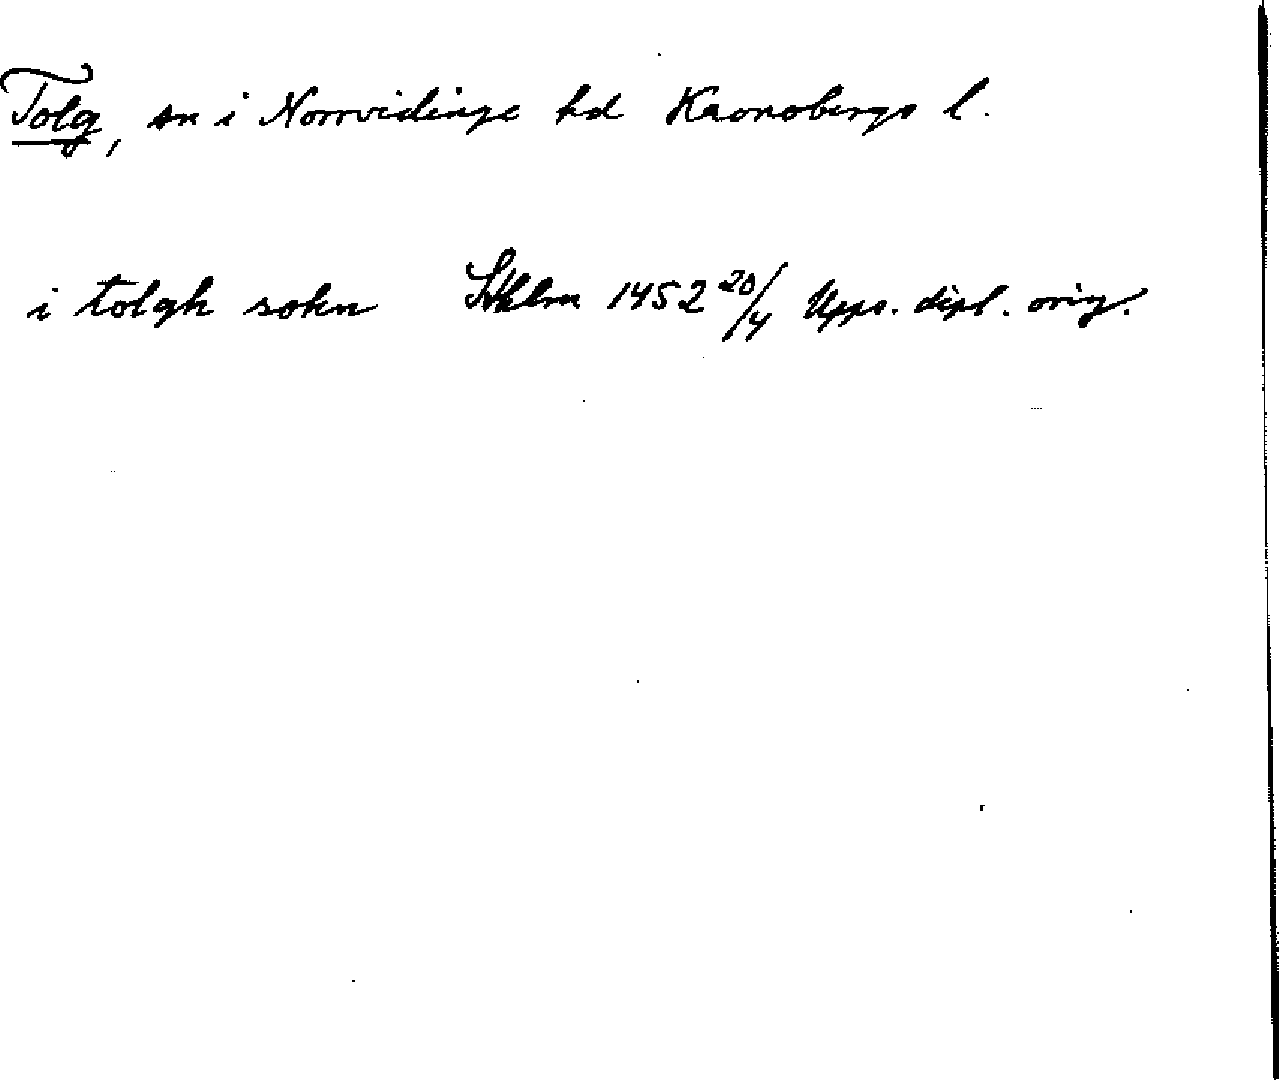 Tolg, sn i Norrvidinge hd Kronobergs l.
i tolgh sokn Sthlm 1452 20/4 Upps. dipl. orig.